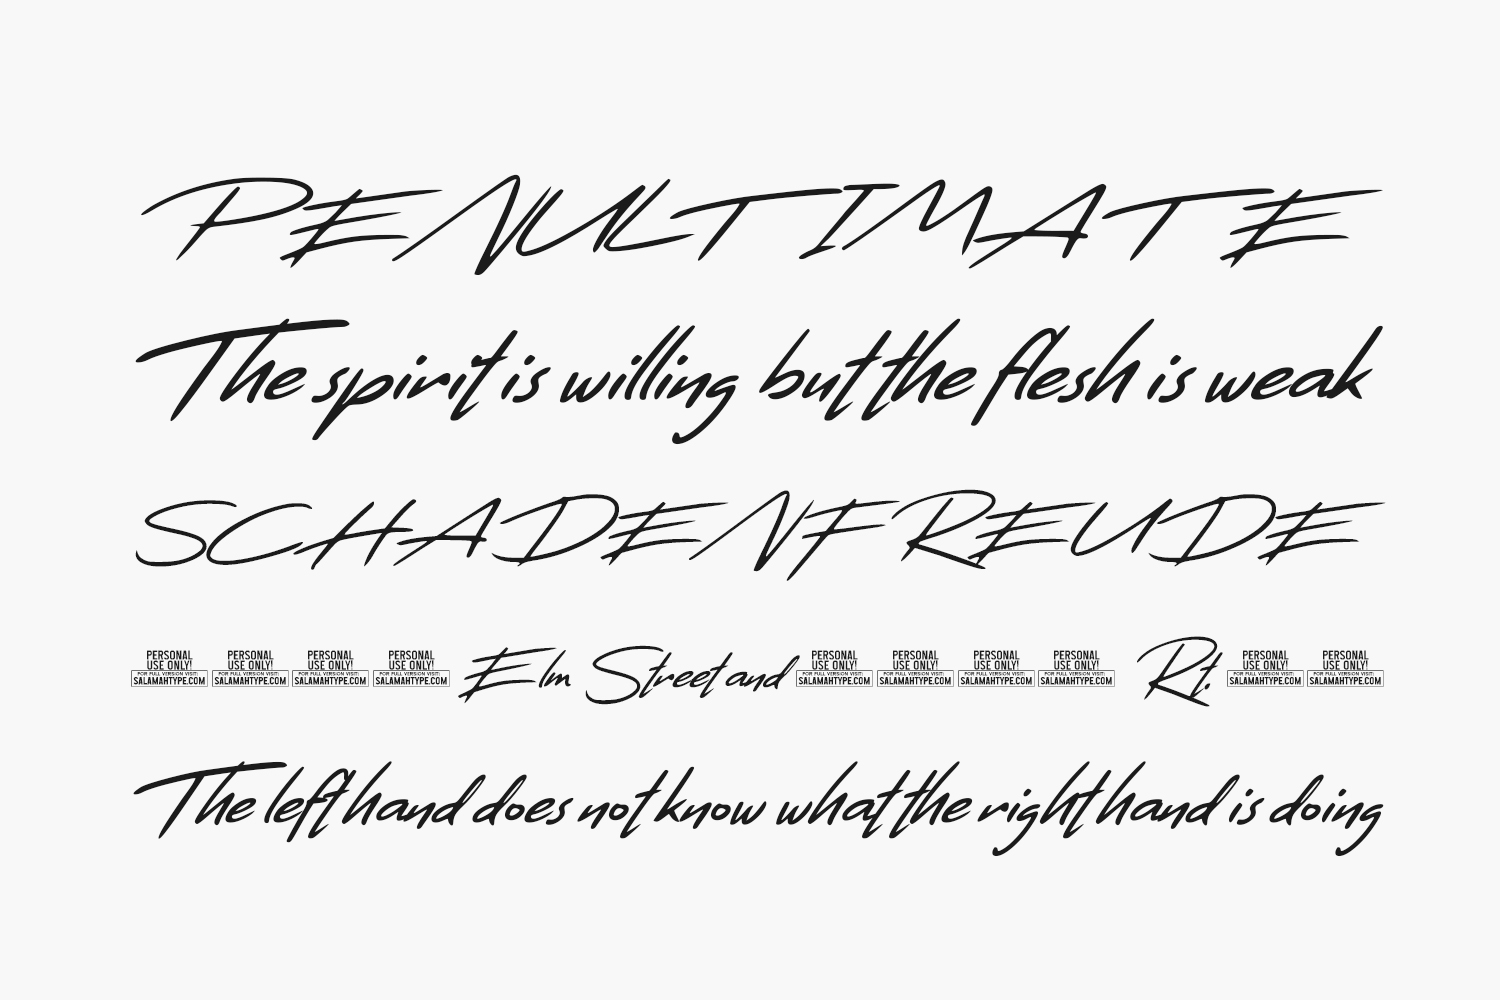 PENULTIMATE
The spirit is willing but the flesh is weak
SCHADENFREUDE
PERSONAL USE ONLY! FOR FULL VERSION VISIT: SALAMAHTYPE.COM PERSONAL USE ONLY! FOR FULL VERSION VISIT: SALAMAHTYPE.COM PERSONAL USE ONLY! FOR FULL VERSION VISIT: SALAMAHTYPE.COM PERSONAL USE ONLY! FOR FULL VERSION VISIT: SALAMAHTYPE.COM Elm Street and PERSONAL USE ONLY! FOR FULL VERSION VISIT: SALAMAHTYPE.COM PERSONAL USE ONLY! FOR FULL VERSION VISIT: SALAMAHTYPE.COM PERSONAL USE ONLY! FOR FULL VERSION VISIT: SALAMAHTYPE.COM PERSONAL USE ONLY! FOR FULL VERSION VISIT: SALAMAHTYPE.COM Rt. PERSONAL USE ONLY! FOR FULL VERSION VISIT: SALAMAHTYPE.COM PERSONAL USE ONLY! FOR FULL VERSION VISIT: SALAMAHTYPE.COM
The left hand does not know what the right hand is doing